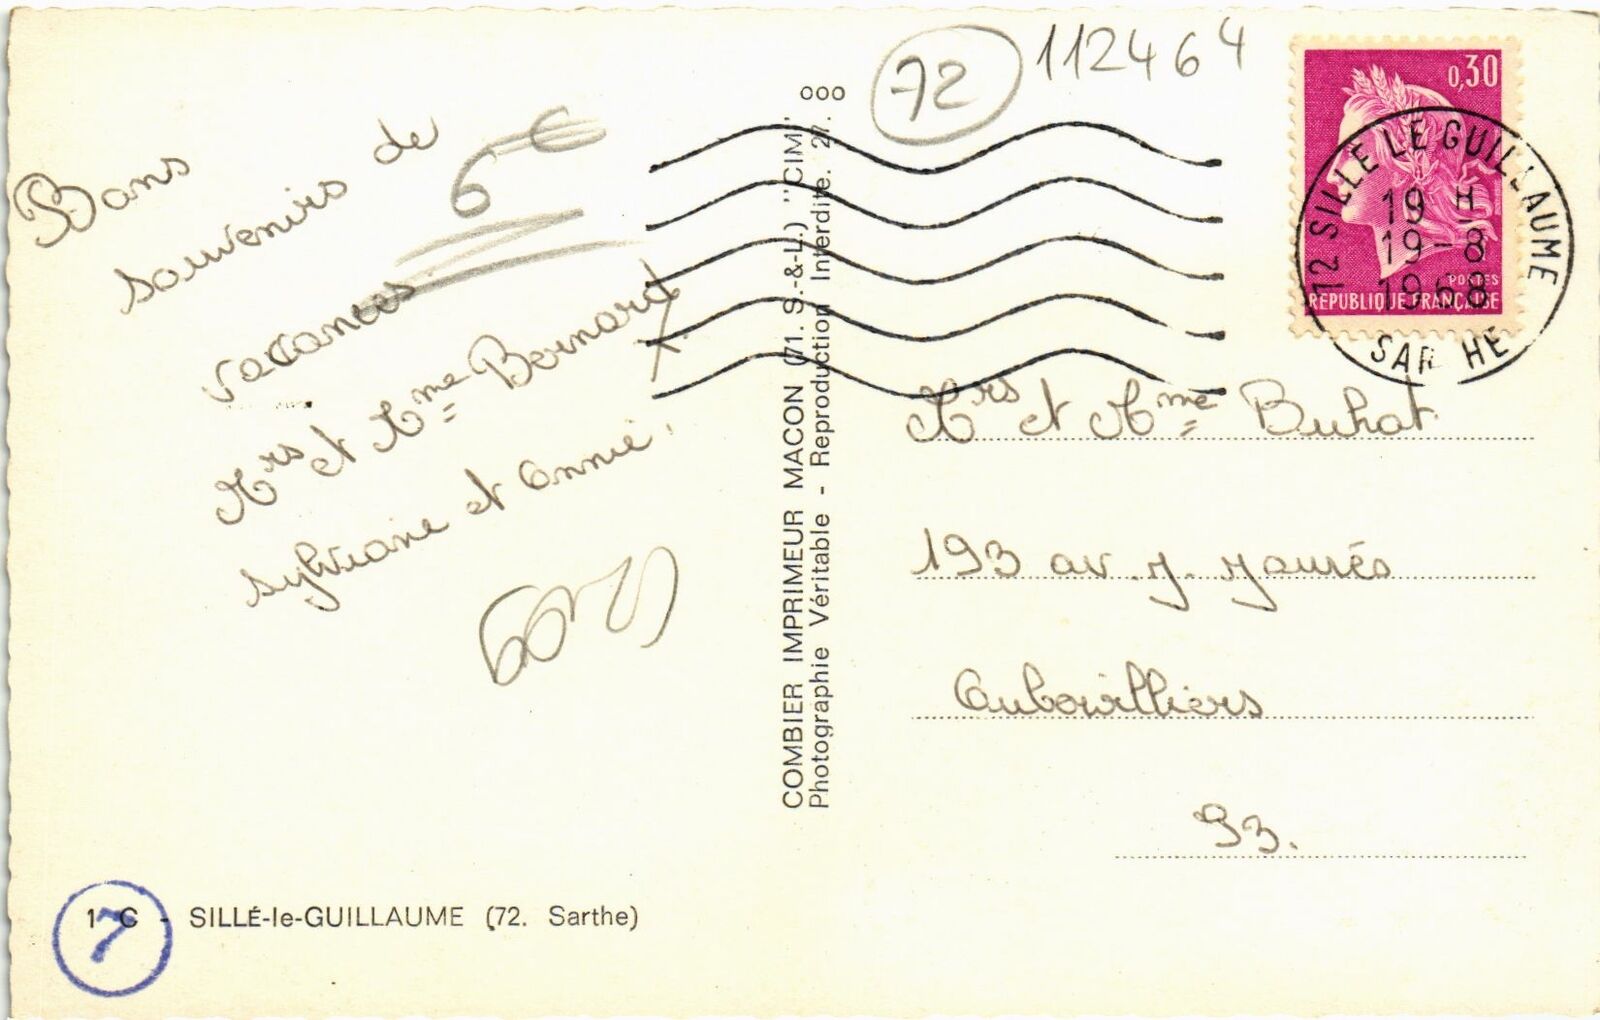 Bons
souvenirs de
vacances
Mrs et Mme Bernard
Sylviane et Annie.
6 €
72
112464
ooo
COMBIER IMPRIMEUR MACON (71. S.-&-L.) "CIM"
Photographie Véritable - Reproduction Interdite. 27.
0,30
POSTES
REPUBLIQUE FRANÇAISE
72 SILLE LE GUILLAUME
19 H
19-8
1968
SAR HE
Mrs et Mme Buhat
193 av. J. Jaurés
Aubervilliers
93.
1 C - SILLÉ-le-GUILLAUME (72. Sarthe)
7